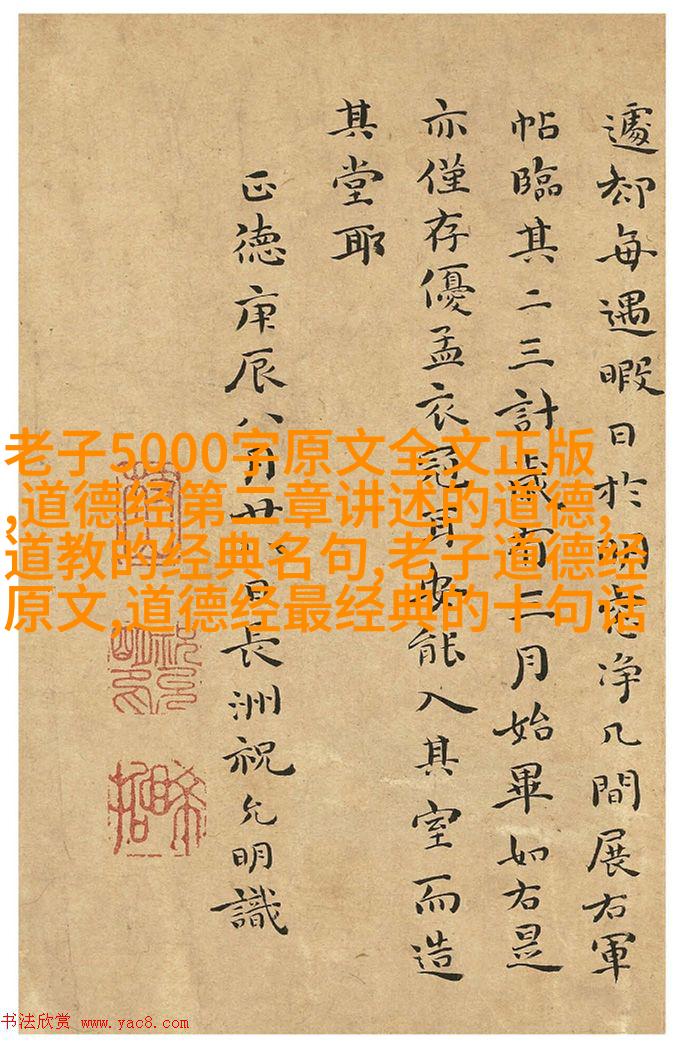 遽却每遇暇日於明窓净几間展右軍
帖臨其二三計歲三月始畢如右是
亦僅存優孟衣冠耳安能入其室而造
其堂耶
正德庚辰八月廿日長洲祝允明識
老子5000字原文全文正版
,道德经第二章讲述的道德,
道教的经典名句,老子道德经
原文,道德经最经典的十句话
书法欣赏 www.yac8.com